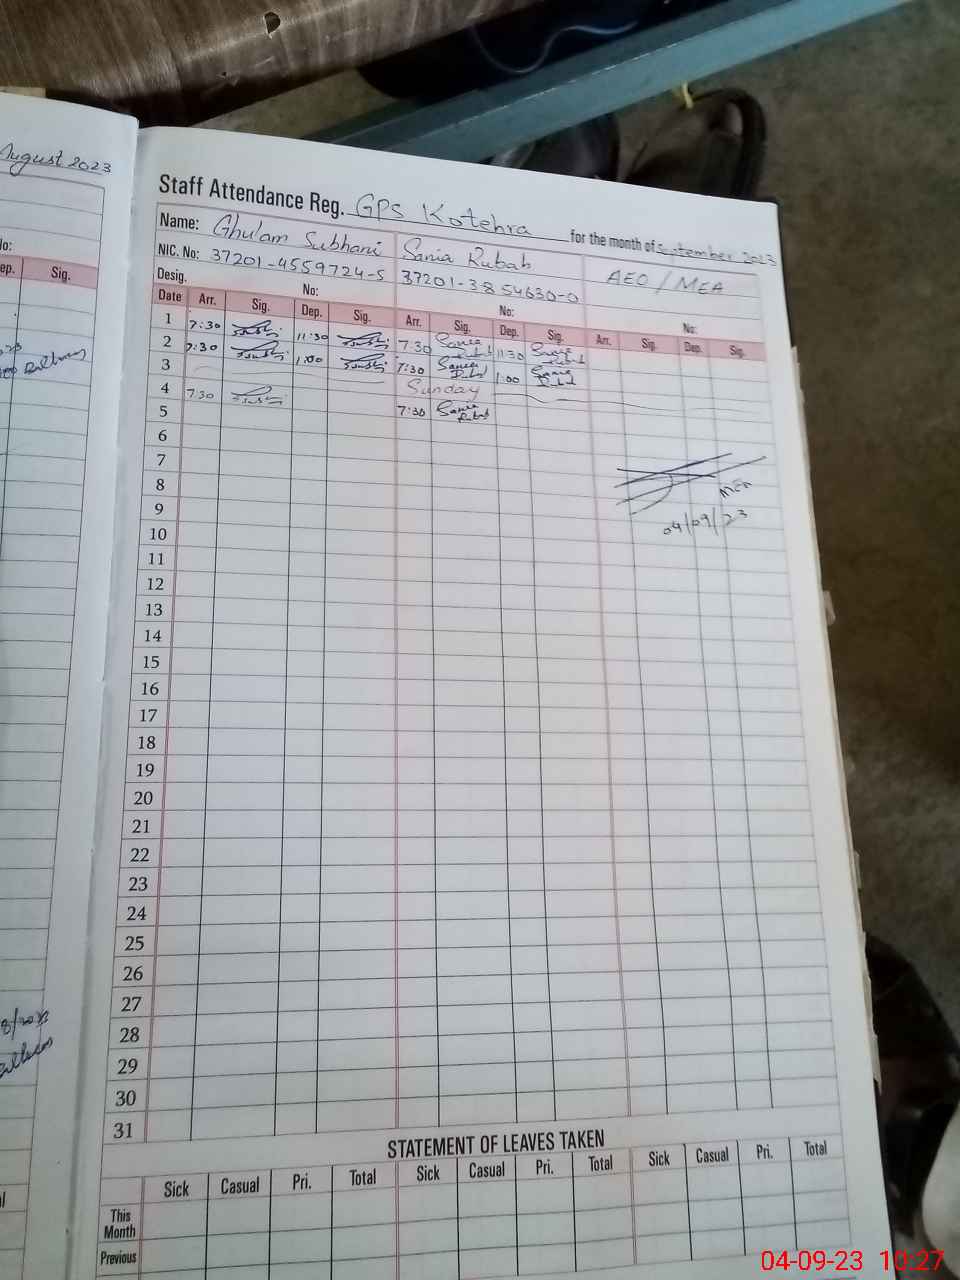 August 2023
Staff Attendance Reg. GPS Kotehra for the month of September 2023
Name: Ghulam Subhani Sania Rubab AEO / MEA
NIC. No: 37201-4559724-5 37201-3854630-0
Desig. No: No: No:
Date Arr. Sig. Dep. Sig. Arr. Sig. Dep. Sig. Arr. Sig. Dep. Sig.
Sig.
1 7:30 11:30 7:30 Sania Rubab 11:30 Sania Rubab
2 7:30 1:00 7:30 Sania Rubab 1:00 Sania Rubab
3 Sunday
4 7:30 7:30 Sania Rubab
5
6
7
8 MEA
9 04/09/23
10
11
12
13
14
15
16
17
18
19
20
21
22
23
24
25
26
27
28
29
30
31
STATEMENT OF LEAVES TAKEN
Sick Casual Pri. Total Sick Casual Pri. Total Sick Casual Pri. Total
This Month
Previous
04-09-23 10:27